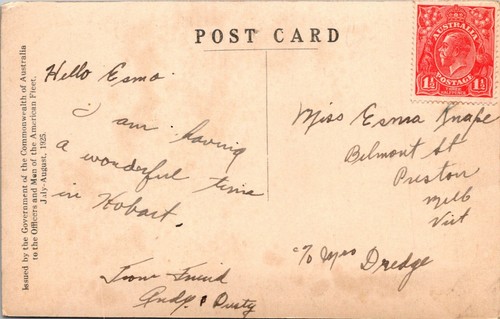 POST CARD
Issued by the Government of the Commonwealth of Australia
to the Officers and Men of the American Fleet,
July-August, 1925.
Hello Esma
I am having
a wonderful time
in Hobart.
Your Friend
Andy & Dusty
AUSTRALIA
1½ 1½
POSTAGE
THREE
HALFPENCE
Miss Esma Knape
Belmont St
Preston
Melb
Vict
c/o Mrs Dredge